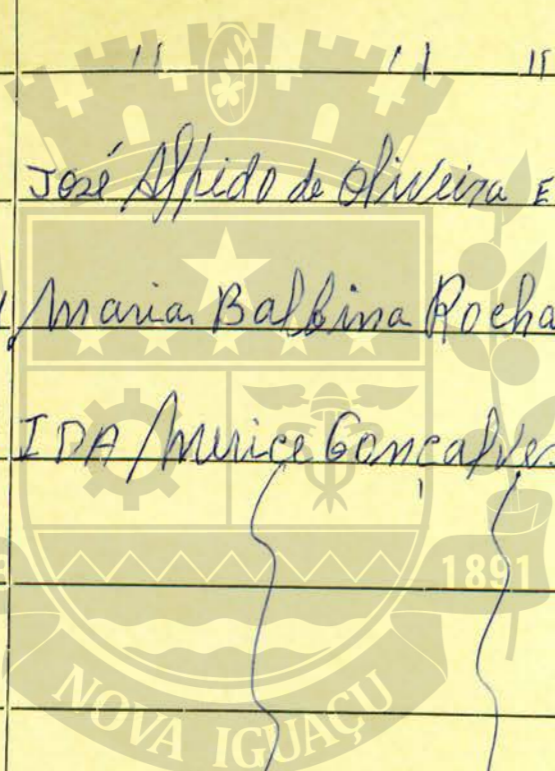 " " "
José Alfrido de Oliveira E
Maria Balbina Rocha
IDA Merice Gonçalves
1891
NOVA IGUAÇU